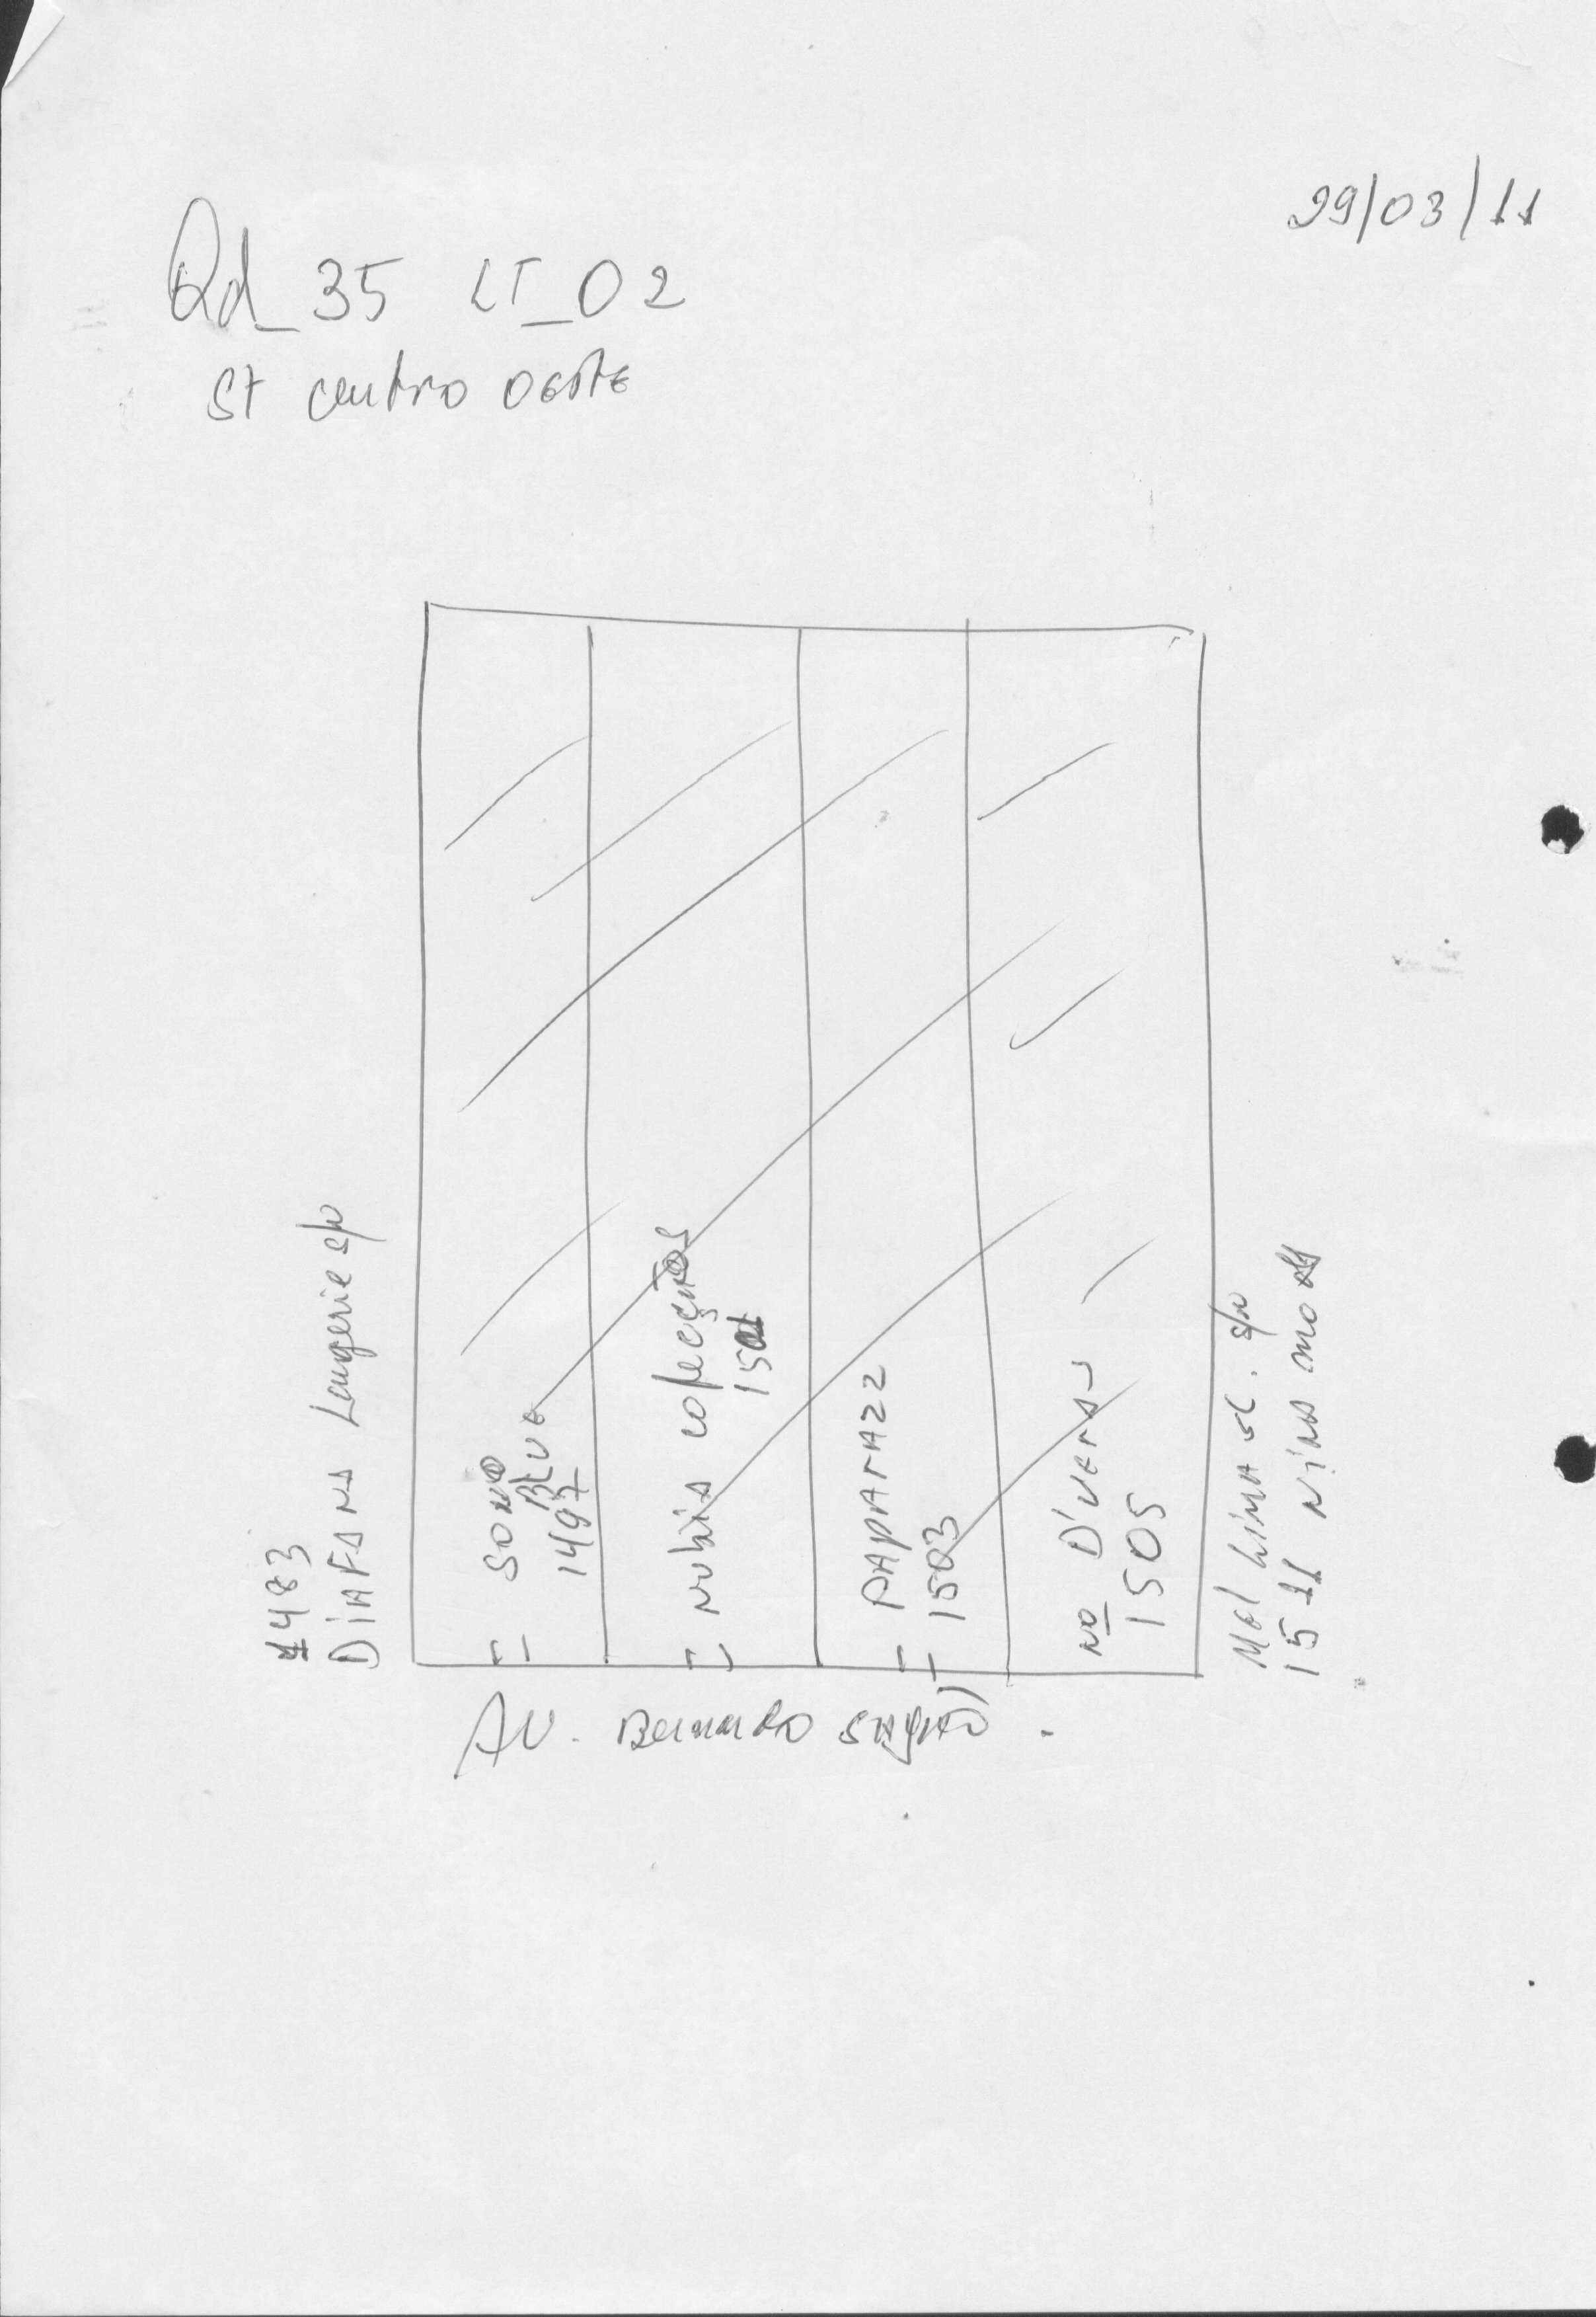 29/03/11
Qd_35 LT_02
St centro oeste
1483
DiAFANA Langerie s/n
SONHO
BLUE
1497
Nubia cofecções
1501
PAPArAZZ
1503
Nº D'VERSU
1505
Mel Lima
s/n
1511 Ninas modas
AV. Bernardo Sayão